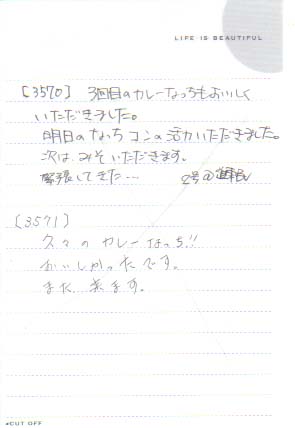 LIFE IS BEAUTIFUL
[3570] 3回目のカレーなっちもおいしく
いただきました。
明日のなっちコンの活力いただきました。
次は、みそいただきます。
緊張してきた… 2号@
[3571]
久々のカレーなっち!!
おいしかったです。
また来ます。
CUT OFF